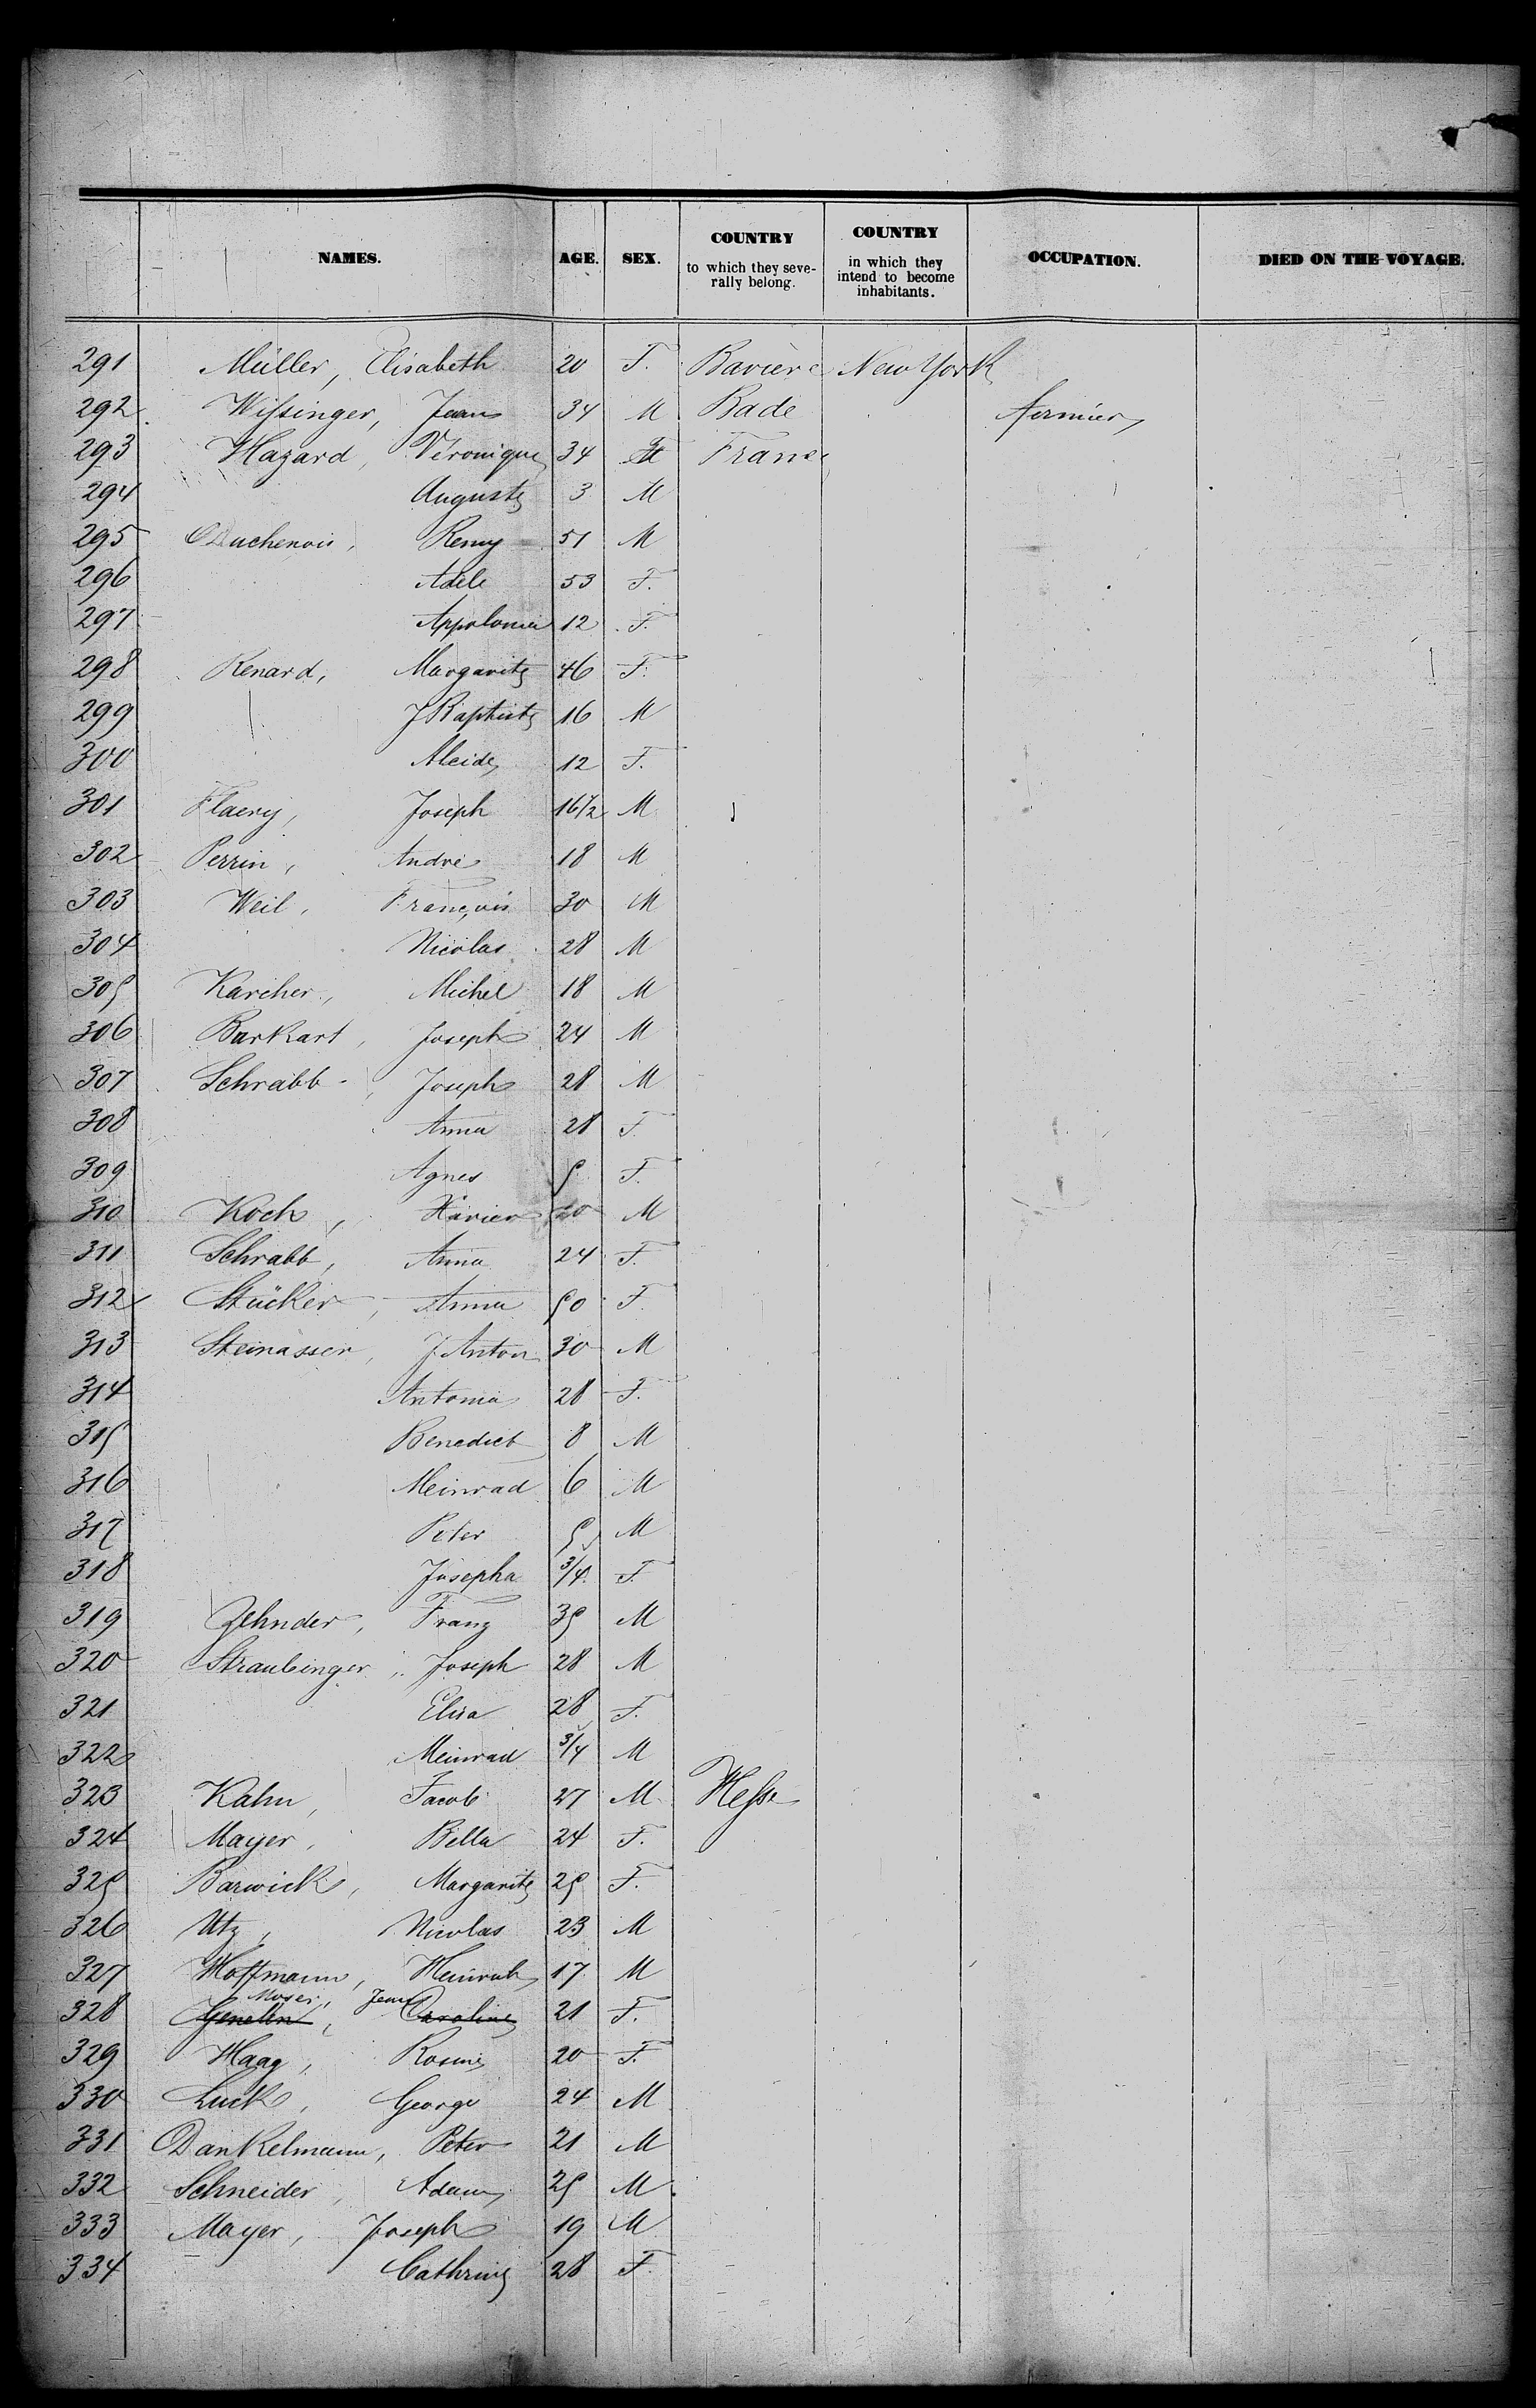 NAMES. AGE. SEX. COUNTRY to which they seve-rally belong. COUNTRY in which they intend to become inhabitants. OCCUPATION. DIED ON THE VOYAGE.
291 Müller, Elisabeth 20 F. Bavière New York
292 Wissinger, Jean 34 M Bade fermier
293 Hazard, Véronique 34 F France
294 Auguste 3 M
295 Duchenois, Remy 51 M
296 Adèle 53 F.
297 Appolonia 12 F.
298 Renard, Margarite 46 F.
299 J Baptiste 16 M
300 12 F.
301 Flaery, Joseph 16 1/2 M
302 Perrin, André 18 M
303 Weil, François 30 M
304 Nicolas 28 M
305 Karcher, Michel 18 M
306 Burkart, Joseph 24 M
307 Schrabb, Joseph 28 M
308 Anna 28 F.
309 Agnes 5 F.
310 Koch, Xavier 20 M
311 Schrabb, Anna 24 F.
312 Stücker, Anna 50 F.
313 Steinasser, J. Anton 30 M
314 Antonia 28 F.
315 Benedict 8 M
316 Meinrad 6 M
317 Peter 5 M
318 Josepha 3/4 F.
319 Zehnder, Franz 35 M
320 Straubinger, Joseph 28 M
321 Elisa 28 F.
322 Meinrad 3/4 M
323 Kahn, Jacob 27 M Hesse
324 Mayer, Bella 24 F.
325 Barwick, Margarite 25 F.
326 Utz, Nicolas 23 M
327 Hoffmann, Heinrich 17 M
Moser, Jean
328 Genelin, Caroline 21 F.
329 Haag, Rosine 20 F.
330 Luck, George 24 M
331 Dankelmann, Peter 21 M
332 Schneider, Adam 25 M
333 Mayer, Joseph 19 M
334 Cathrine 28 F.